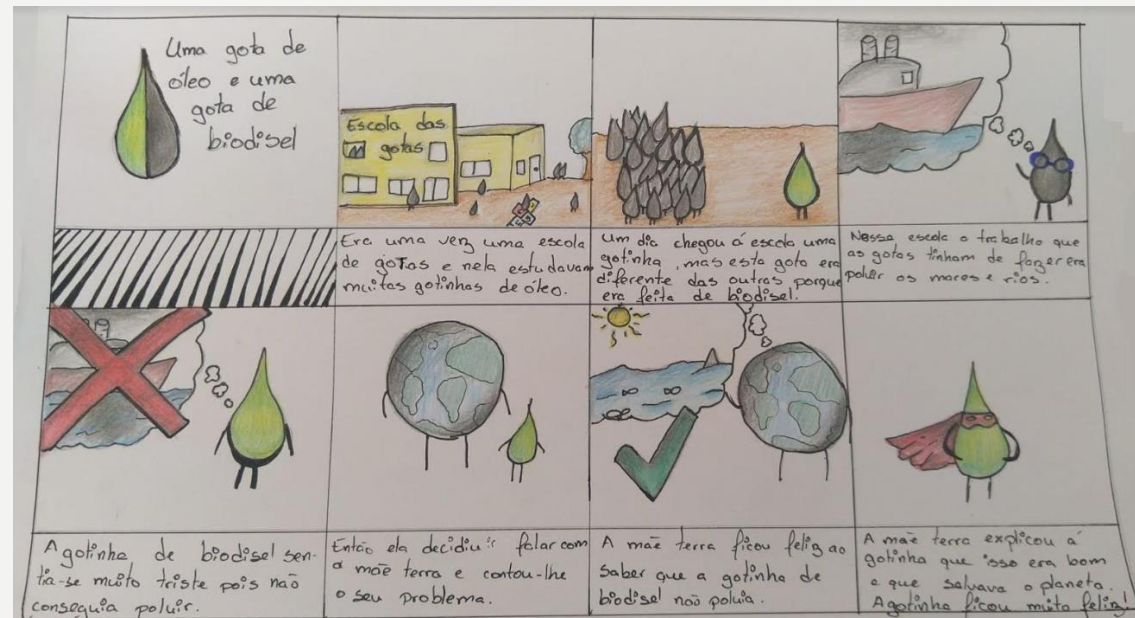 Uma gota de
óleo e uma
gota de
biodisel
Escola das
gotas
Era uma verz uma escola
de gotas e nela estudavam
muitas gotinhas de óleo.
Um dia chegou á escola uma
gotinha, mas esta gota era
diferente das outras porque
era feita de biodisel.
Nessa escola o trabalho que
as gotas tinham de fazer era
poluir os mares e rios.
A gotinha de biodisel sen-
tia-se muito triste pois não
conseguia poluir.
Então ela decidiu ir falar com
a mãe terra e contou-lhe
o seu problema.
A mãe terra ficou feliz ao
saber que a gotinha de
biodisel não poluia.
A mãe terra explicou á
gotinha que isso era bom
e que salvava o planeta.
A gotinha ficou muito feliz!